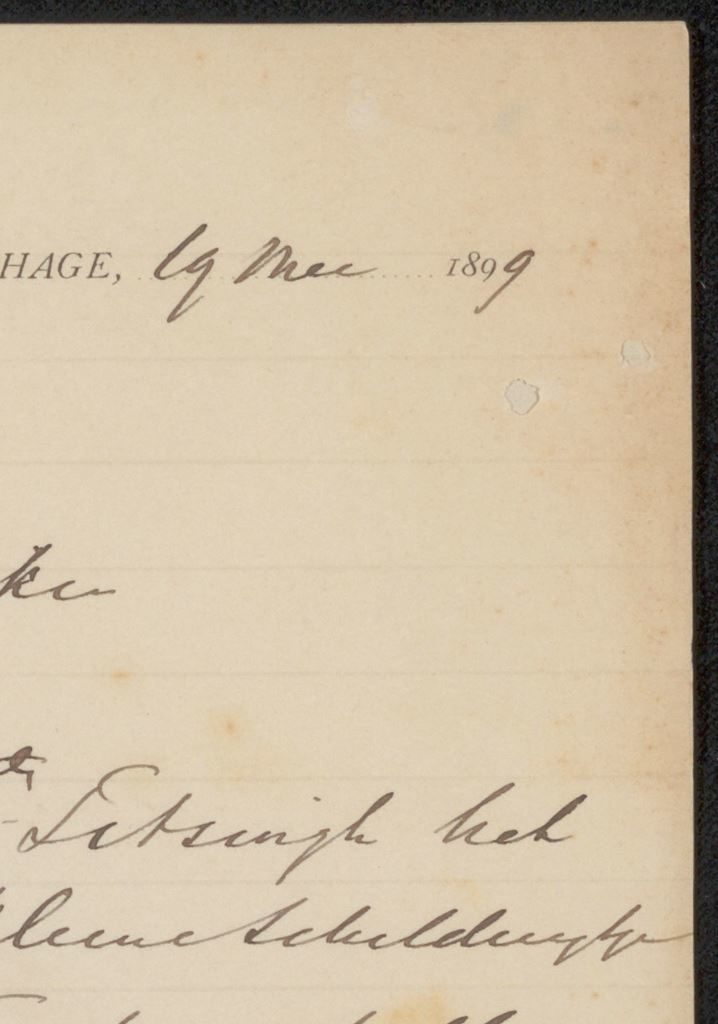 HAGE, 19 Mei 1899
ken
Sitsingh het
kleine schilderijtje